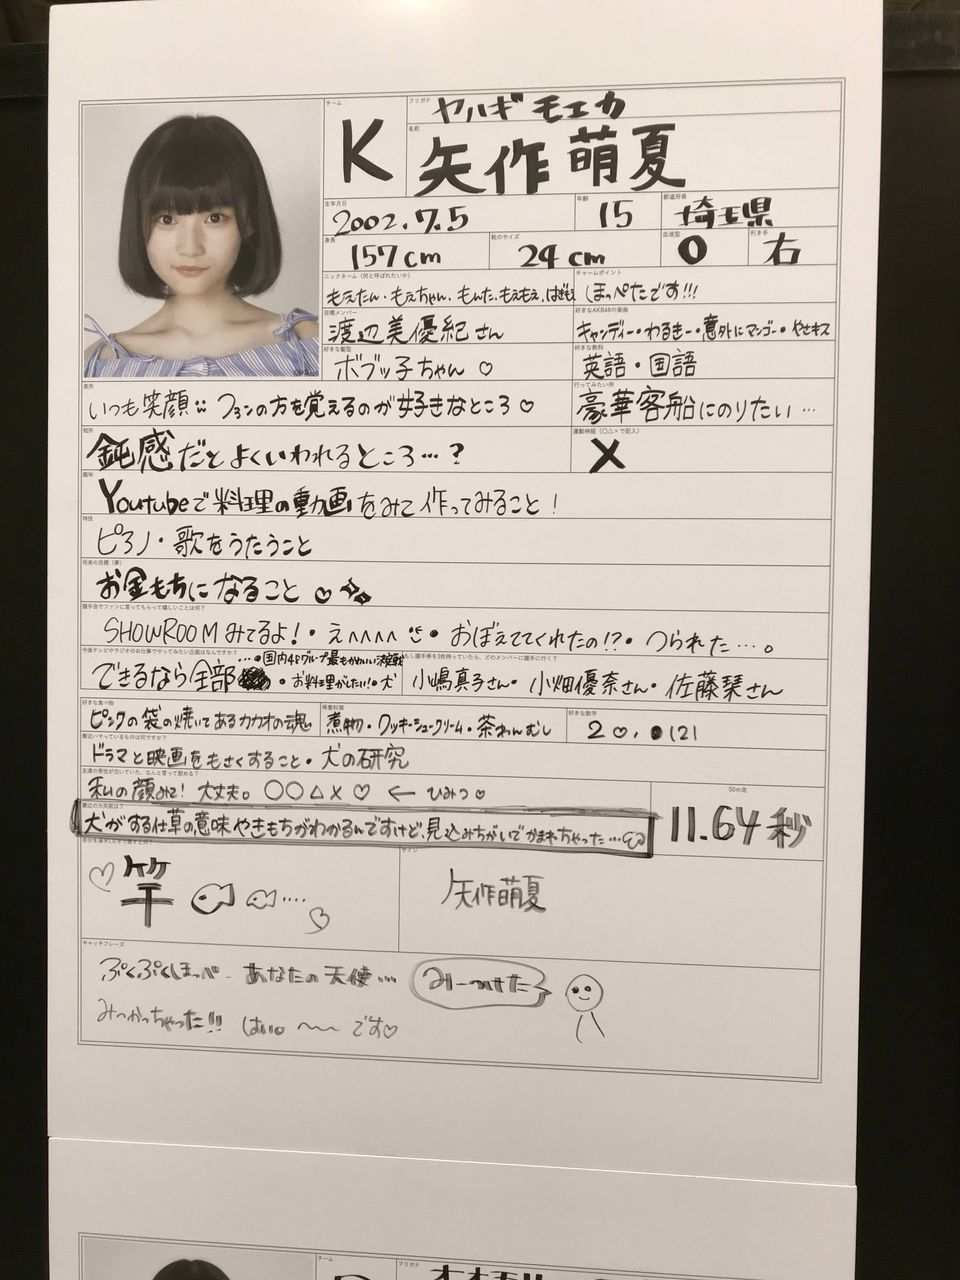 チーム
K
フリガナ
ヤハギ モエカ
名前
矢作 萌夏
生年月日
2002.7.5
年齢
15
都道府県
埼玉県
身長
157cm
靴のサイズ
24cm
血液型
O
利き手
右
ニックネーム(何と呼ばれたいか)
もえたん・もえちゃん、もんた、もえもえ、はぎもえ
チャームポイント
ほっぺたです!!!
目標メンバー
渡辺美優紀さん
好きなAKB48の楽曲
キャンディー・わるきー・意外にマンゴー・やさキス
好きな髪型
ボブッ子ちゃん♡
好きな教科
英語・国語
長所
いつも笑顔 ファンの方を覚えるのが好きなところ♡
行ってみたい所
豪華客船にのりたい…
短所
鈍感だとよくいわれるところ…?
運動神経(○△×で記入)
×
趣味
Youtubeで料理の動画をみて作ってみること!
特技
ピアノ・歌をうたうこと
将来の目標(夢)
お金もちになること♡
握手会でファンに言ってもらって嬉しいことは何?
SHOWROOMみてるよ!・え^^^^・おぼえててくれたの!?・つられた…。
今後テレビやラジオのお仕事でやってみたい企画はなんですか?
できるなら全部
…・国内48グループ最もかわいい決定戦
・お料理がしたい!・犬
もし握手券を3枚持っていたら、どのメンバーに握手に行く?
小嶋真子さん・小畑優奈さん・佐藤栞さん
好きな食べ物
ピンクの袋の焼いてあるカカオの魂
得意料理
煮物・クッキーシュークリーム・茶わんむし
好きな数字
20.121
最近ハマっているものは何ですか?
ドラマと映画をもさくすること・犬の研究
友達の男性が泣いていた。なんと言って慰める?
私の顔みて!大丈夫。○○△×♡←ひみつ♡
50m走
11.64秒
最近の大失敗は?
犬がする仕草の意味やきもちがわかるんですけど、見込みちがいでかまれちゃった…
自分を漢字1文字で表すと何?
竿
サイン
矢作萌夏
キャッチフレーズ
ぷくぷくほっぺ- あなたの天使…
みーつけた
みつかっちゃった!! はい。〜〜です♡
チーム
フリガナ